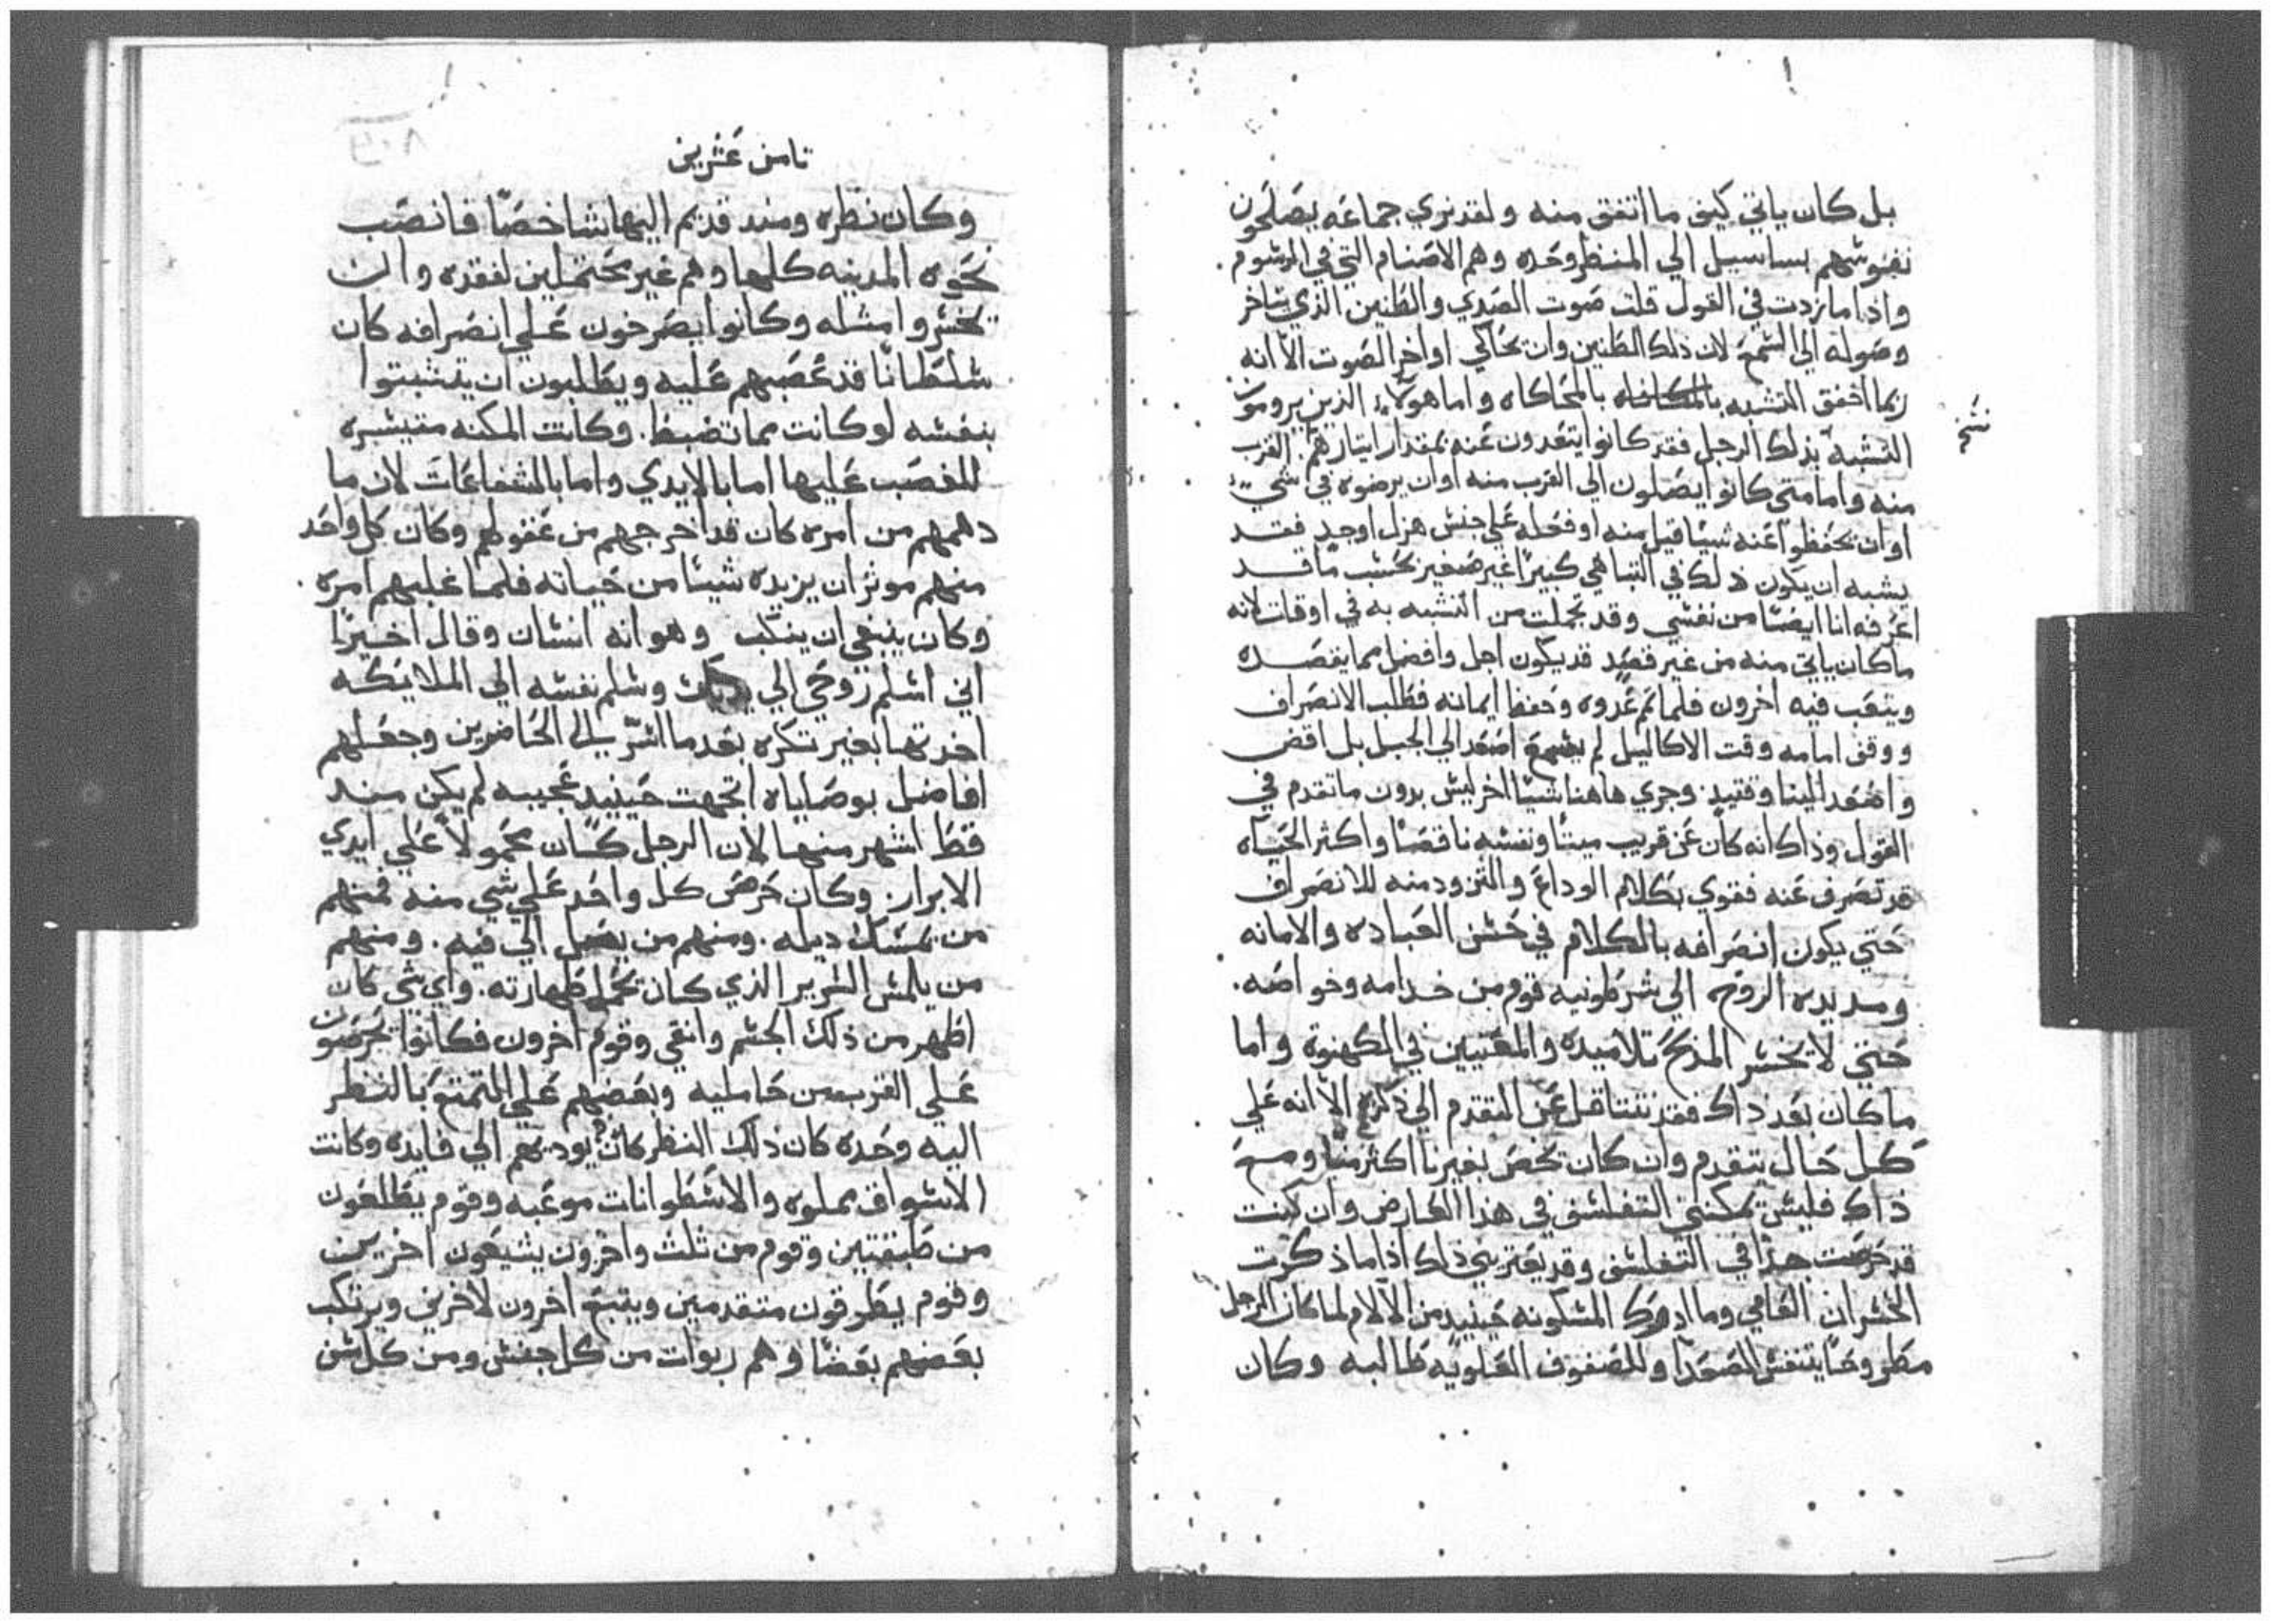 بل كان ياتي كيف ما اتفق منه ولقد نري جماعه يصلحون
نفوسهم بساسيل الي المنظر وحده وهم الاصنام التي في الرسوم.
واذا ما زدت في القول قلت صوت الصدي والطنين الذي يتاخر
وصوله الي السمع لان ذلك الطنين وان يحاكي اواخر الصوت الا انه
ربما اخفق التشبه بالمحاكاه واما هولاء الذين يرومون
نسخ
التشبه بذلك الرجل فقد كانوا يبتعدون عنه بمقدار ايثارهم القرب
منه واما متي كانوا يصلون الي القرب منه او ان يرضوه في شيء
او ان يحفظوا عنه شيئا قيل منه او فعله علي جنس هزل او جد فقد
يشبه ان يكون ذلك في التباهي كبيرا غير صغير بحسب ما قد
اعرفه انا ايضا من نفسي وقد تجملت من التشبه به في اوقات لانه
ما كان ياتي منه من غير قصد قد يكون اجل وافضل مما يقصده
ويتعب فيه اخرون فلما تم عدوه وحفظ ايمانه فطلب الانصراف
ووقف امامه وقت الاكاليل لم يسمع اصعد الي الجبل بل اقض
واصعد الينا وقتيد. وجري هاهنا شيئا اخر ليس بدون ما تقدم في
القول وذاك انه كان عن قريب ميتا ونفسه ناقصا واكثر الحياه
قد تصرف عنه فقوي بكلام الوداع والتزود منه للانصراف
حتي يكون انصرافه بالكلام في حسن العباده والامانه
ومد يده الروح الي شرطونيه قوم من خدامه وخواصه.
حتي لا يخسر المذبح تلاميده والمعنيين في الكهنوة واما
ما كان بعد ذاك فقد نتثاقل عن التقدم الي ذكره الا انه علي
كل حال يتقدم وان كان يخص بغيرنا اكثر منا ومع
ذاك فليس يمكنني التفلسف في هذا العارض وان كنت
قد حرصت جدا في التفلسف وقد يعتريني ذلك اذا ما ذكرت
الخسران العامي وما ادرك المسكونه حينيد من الآلام لما كان الرجل
مطروحا يتنفس الصعدا وللصفوف العلويه طالبه وكان
ثامن عشرين
وكان نظره ومند قديم اليها شاخصا فانصب
نحوه المدينه كلها وهم غير محتملين لفقده وان
يخسروا مثله وكانوا يصرخون علي انصرافه كان
سلطانا قد غصبهم عليه ويطلبون ان يتشبتوا
بنفسه لو كانت مما تضبط. وكانت المكنه متيسره
للغصب عليها اما بالايدي واما بالشفاعات لان ما
دهمهم من امره كان قد اخرجهم من عقولهم وكان كل واحد
منهم موثر ان يزيده شيئا من حياته فلما غلبهم امره
وكان ينبغي ان ينكب وهو انه انسان وقال اخيرا
اني اسلم روحي الي يديك وسلم نفسه الي الملايكه
اخدتها بغير تكره بعد ما اشر الي الحاضرين وجعلهم
افاضل بوصاياه اتجهت حينيد عجيبه لم يكن مند
قط اشهر منها لان الرجل كان محمولا علي ايدي
الابرار. وكان حرص كل واحد علي شي منه فمنهم
من يمسك ديله. ومنهم من يصل الي فيه. ومنهم
من يلمس السرير الذي كان يحمل طهارته. واي شي كان
اطهر من ذلك الجسم وانقي وقوم اخرون فكانوا يحرصون
علي القرب من حامليه وبعضهم علي التمتع بالنظر
اليه وحده كان ذلك النظر كان يوديهم الي فايده وكانت
الاسواق مملوه والاسطوانات موعبه وقوم يطلعون
من طبقتين وقوم من ثلث واخرون يشيعون اخرين
وقوم يطرقون متقدمين ويتبع اخرون لاخرين ويرتكب
بعضهم بعضا وهم ربوات من كل جنس ومن كل سن